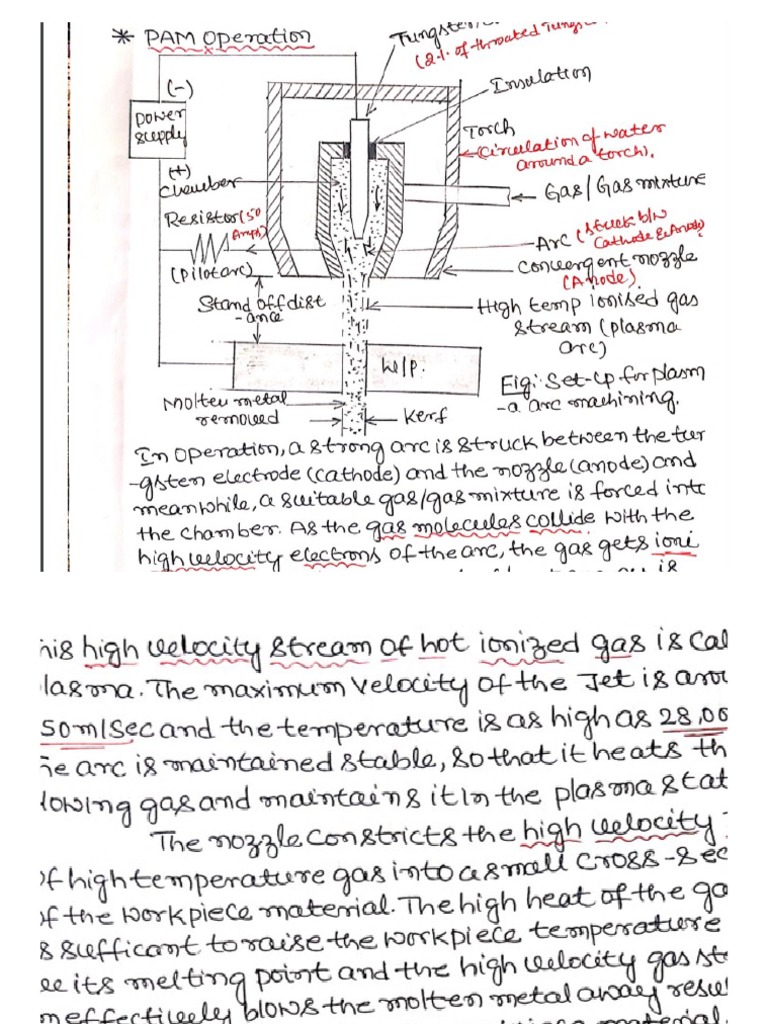 * PAM Operation
Tungsten
(2% of throated Tungs
(-)
Insulation
power
supply
Torch
(Circulation of water
around a torch).
(+)
chamber
Gas/Gas mixture
Resistor (50
Amps)
Arc (struck b/w
Cathode & Anode)
(pilot arc)
Convergent nozzle
(Anode).
Stand off dist
-ance
High temp ionised gas
stream (plasma
arc)
W/P.
Fig: Set-up for plasm
-a arc machining.
Molten metal
removed
Kerf
In operation, a strong arc is struck between the tun
-gsten electrode (cathode) and the nozzle (anode) and
meanwhile, a suitable gas/gas mixture is forced into
the chamber. As the gas molecules collide with the
high velocity electrons of the arc, the gas gets ioni
is
his high velocity stream of hot ionized gas is cal
lasma. The maximum velocity of the Jet is arou
50m/sec and the temperature is as high as 28,00
he arc is maintained stable, so that it heats th
lowing gas and maintains it in the plasma stat
The nozzle constricts the high velocity
of high temperature gas into a small cross-sec
of the workpiece material. The high heat of the ga
s sufficant to raise the workpiece temperature
ve its melting point and the high velocity gas st
m effectively blows the molten metal away resul
material.